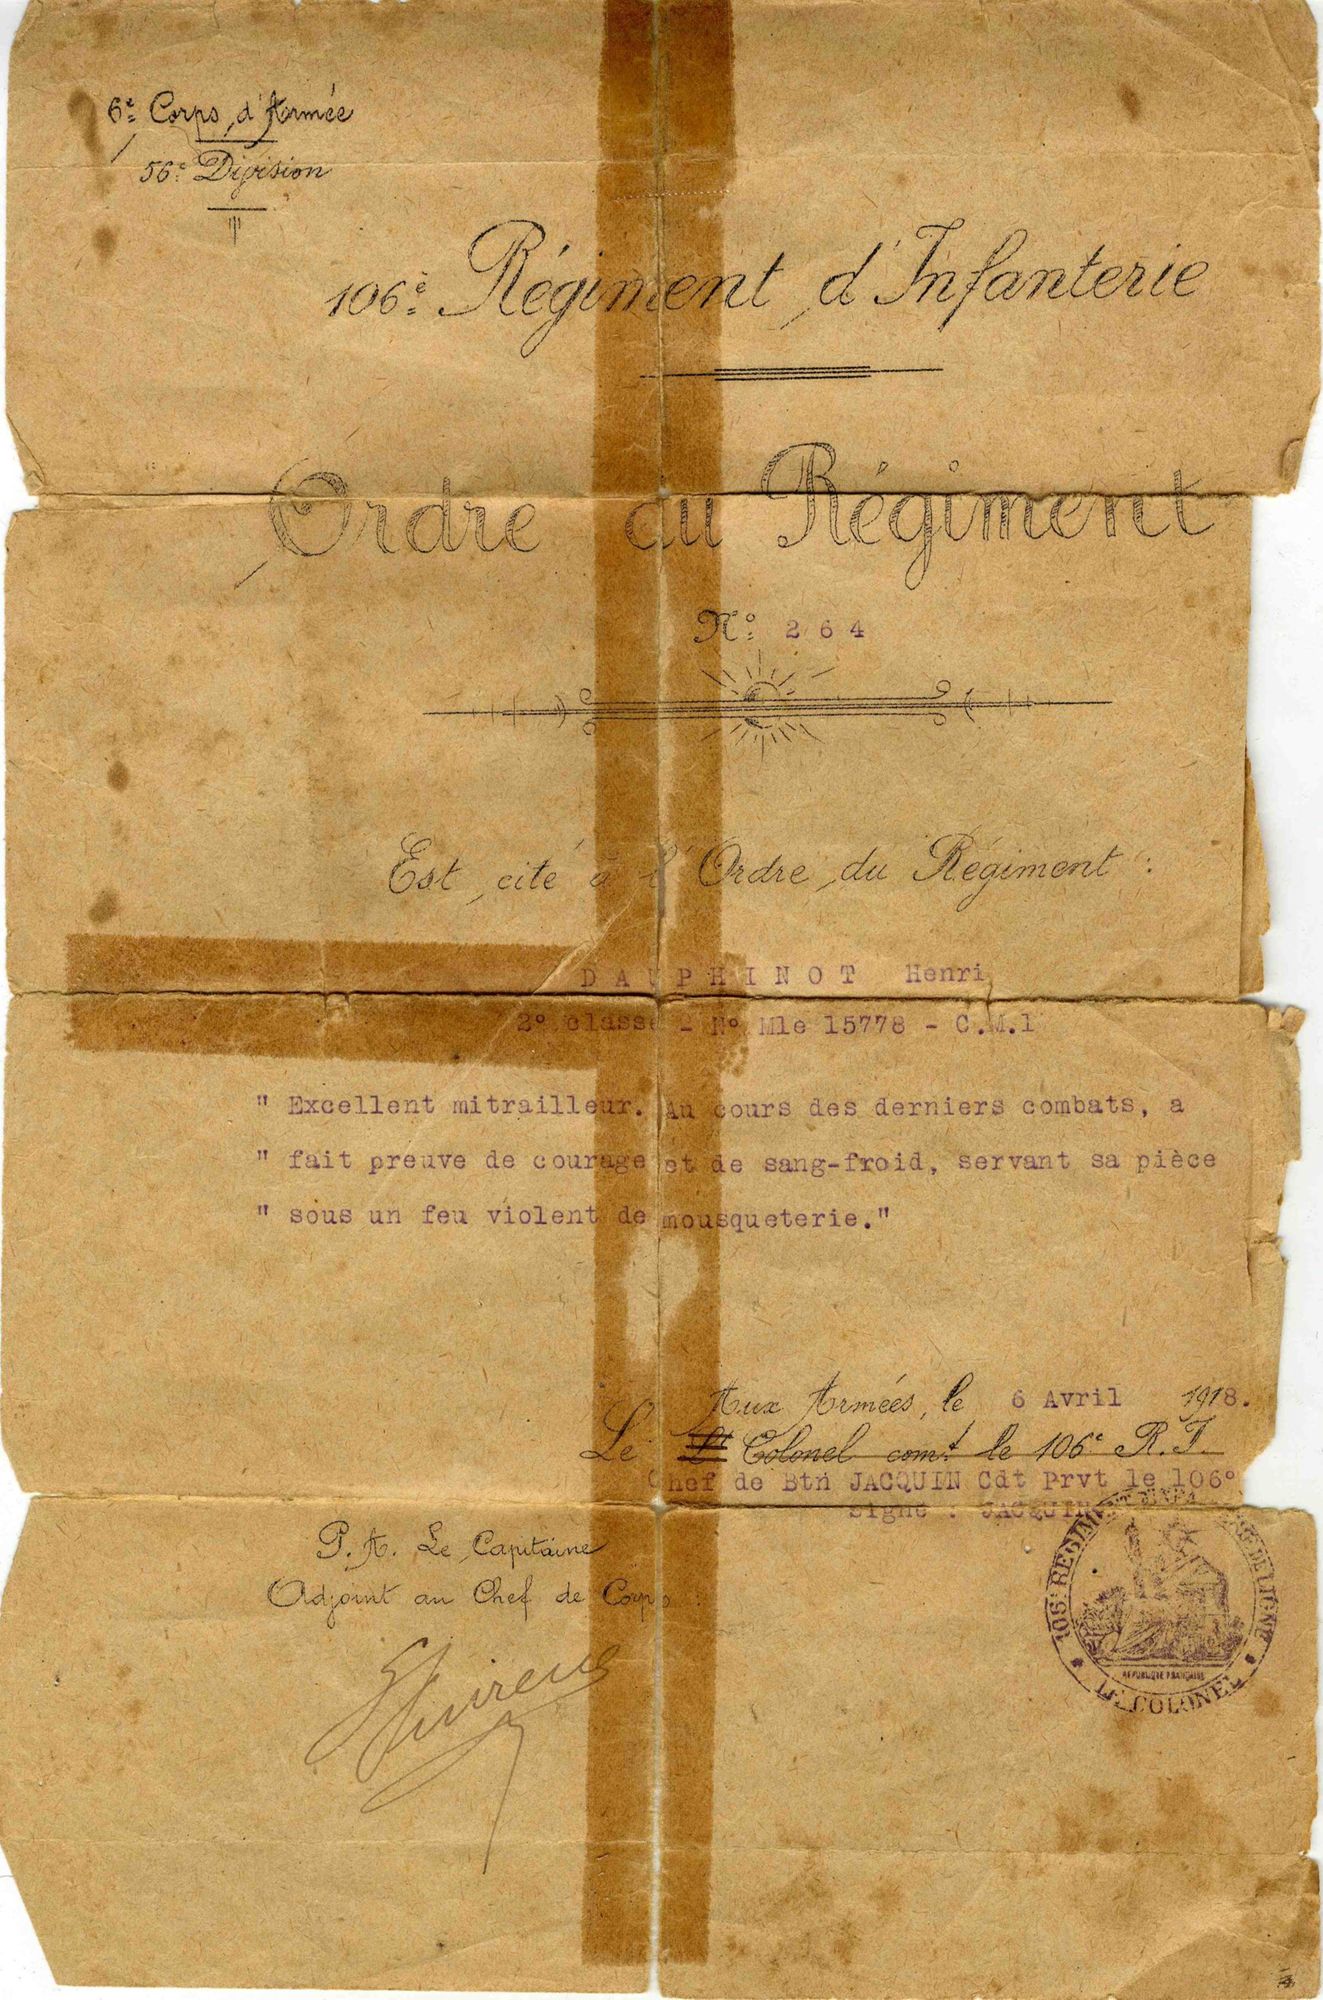 6e Corps d'Armée
56e Division
106e Régiment d'Infanterie
Ordre du Régiment
No 264
Est cité à l'Ordre du Régiment :
DAUPHINOT Henri
2° classe - N° Mle 15778 - C.M.1
" Excellent mitrailleur. Au cours des derniers combats, a
" fait preuve de courage et de sang-froid, servant sa pièce
" sous un feu violent de mousqueterie."
Aux Armées, le 6 Avril 1918.
Le Lt Colonel comt le 106e R.I.
Chef de Btn JACQUIN Cdt Prvt le 106°
signé : JACQUIN
P.A. Le Capitaine
Adjoint au Chef de Corps :
106e REGIMENT D'INFANTERIE DE LIGNE
REPUBLIQUE FRANÇAISE
LE COLONEL